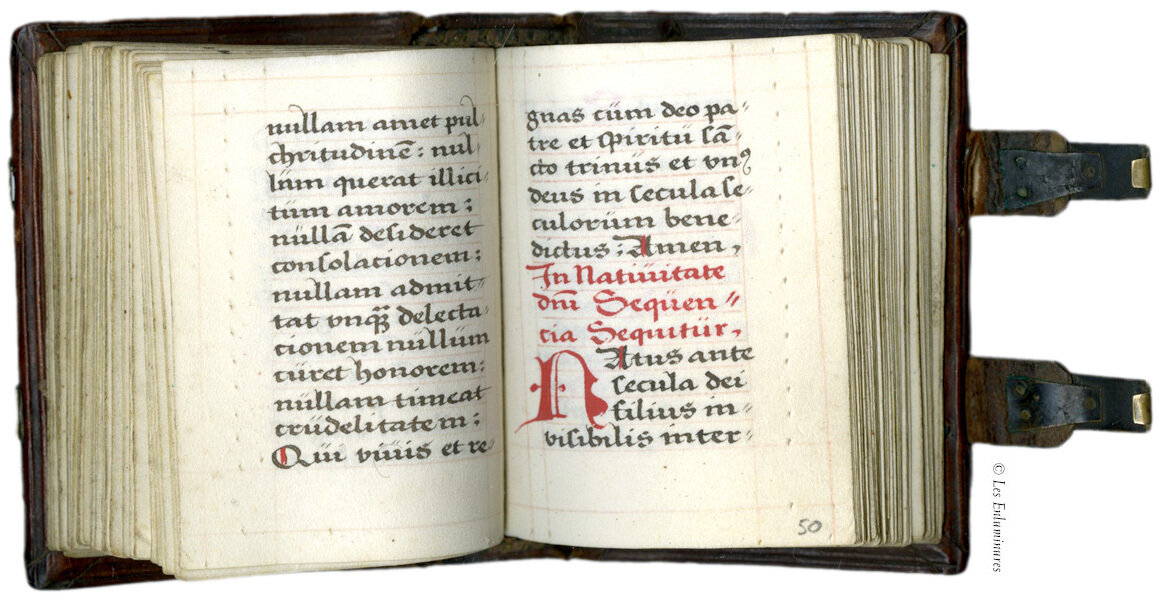 nullam amet pul-
chritudinē: nul-
lüm querat illici-
tüm amorem:
nüllā desideret
consolacionem:
nullam admit-
tat vnqȝ delecta-
cionem nullüm
cüret honorem:
nüllam timeat
crüdelitatem:
Qüi viüis et re-
gnas cüm deo pa-
tre et spiritü sā-
cto trinüs et vnꝰ
deus in secula se-
culorüm bene-
dictus: Amen,
In Natiüitate
dnī Seqüen-
cia Sequitür,
NAtus ante
secula dei
filius in-
visibilis inter-
50
© Les Enluminures